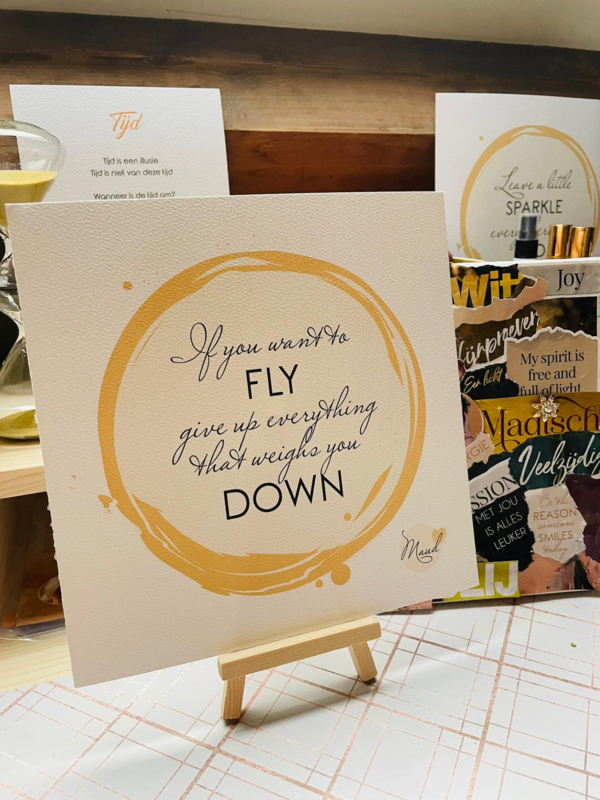 Tijd
Tijd is een illusie
Tijd is niet van deze tijd
Wanneer is de tijd om?
If you want to
FLY
give up everything
that weighs you
DOWN
Maud
Leave a little
SPARKLE
Wit
Joy
Wijnproeven
Een licht
My spirit is
free and
full of light
Magisch
Veelzijdig
MET JOU
IS ALLES
LEUKER
Be the
REASON
someone
SMILES
today